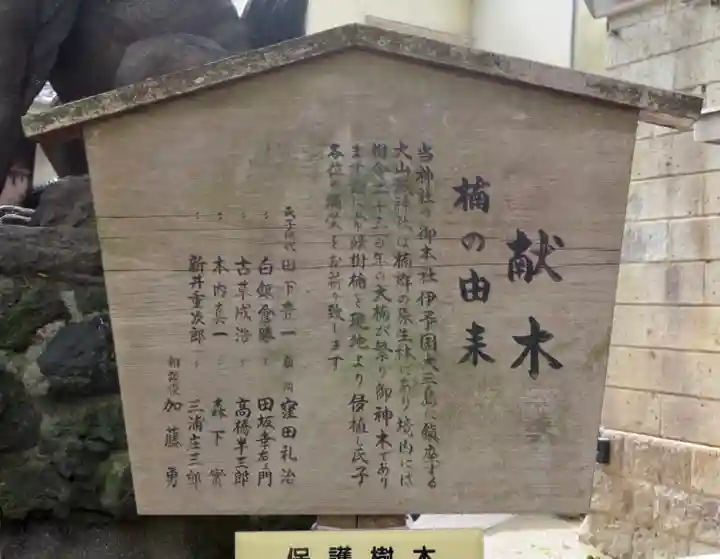 献木
楠の由来
当神社の御本社伊予国大三島に鎮座する
大山祇神社は楠群の原生林にあり境内には
樹令二千三百年の大楠が繁り御神木であり
ます 樹楠を現地より移植し氏子
各位の お祈り致します
氏子総代 田下 一 窪田礼治
白飯 勝 田坂幸右ヱ門
古草成治 高橋半三郎
木内真一 森下実
新井重次郎 三浦庄三郎
加藤勇
保護樹木